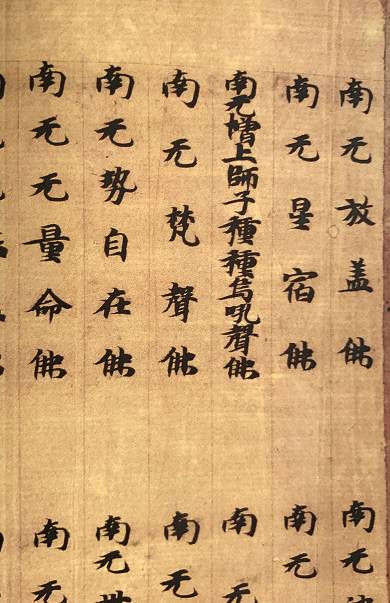 南无放盖佛
南无星宿佛
南无增上師子種種鳥吼聲佛
南无梵聲佛
南无勢自在佛
南无无量命佛
南无
南无
南无
南无
南无世
南无